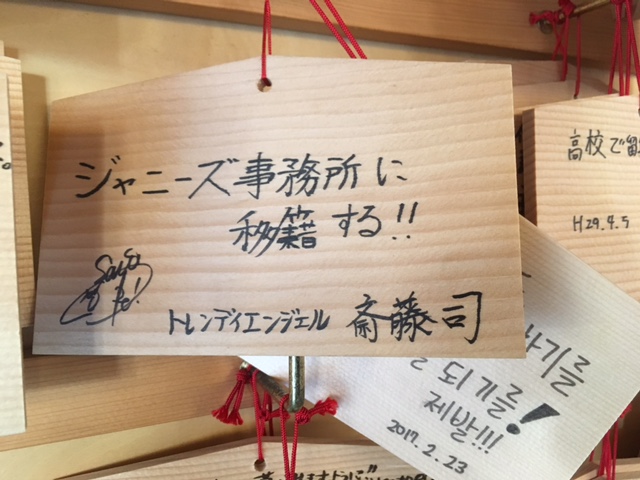 ジャニーズ事務所に
移籍する!!
トレンディエンジェル 斎藤司
高校で留
H29.4.5
기를
되기를!
제발!!!
2017.2.23